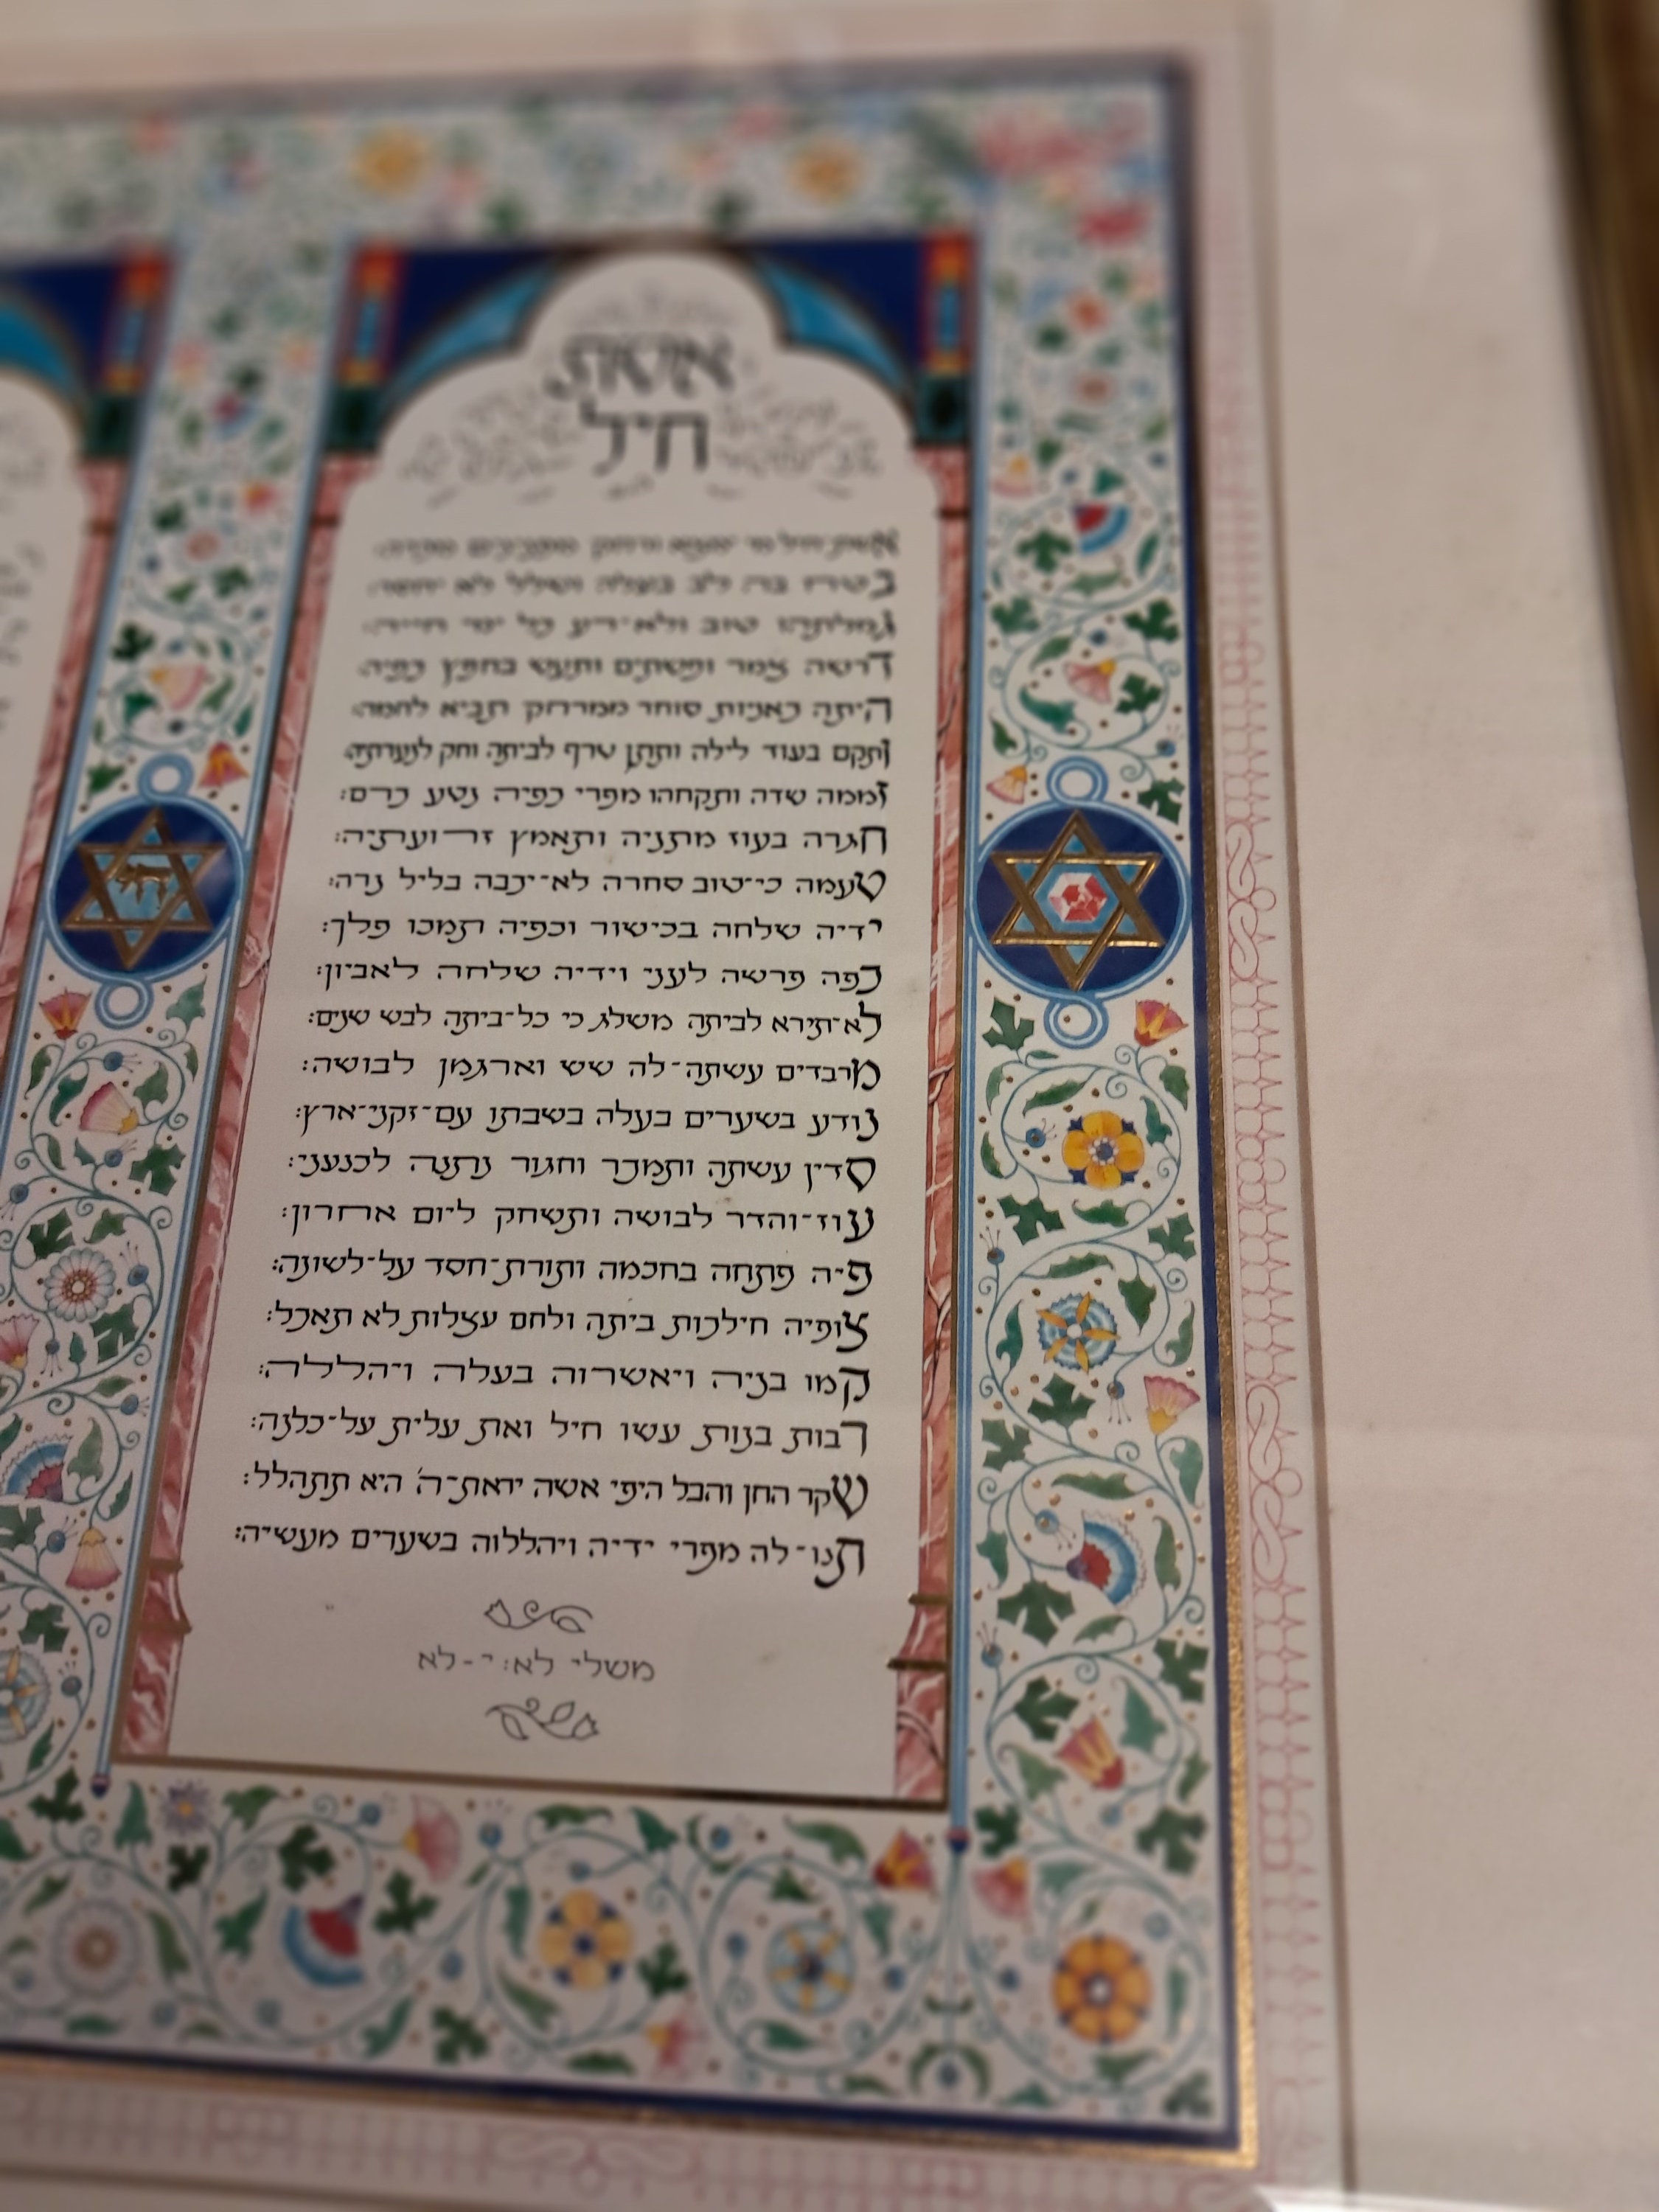 אשת
חיל
אשת חיל מי ימצא ורחק מפנינים מכרה:
בטח בה לב בעלה ושלל לא יחסר:
גמלתהו טוב ולא־רע כל ימי חייה:
דרשה צמר ופשתים ותעש בחפץ כפיה:
היתה כאניות סוחר ממרחק תביא לחמה:
ותקם בעוד לילה ותתן טרף לביתה וחק לנערתיה:
זממה שדה ותקחהו מפרי כפיה נטע כרם:
חגרה בעוז מתניה ותאמץ זרועתיה:
טעמה כי־טוב סחרה לא־יכבה בליל נרה:
ידיה שלחה בכישור וכפיה תמכו פלך:
כפה פרשה לעני וידיה שלחה לאביון:
לא־תירא לביתה משלג כי כל־ביתה לבש שנים:
מרבדים עשתה־לה שש וארגמן לבושה:
נודע בשערים בעלה בשבתו עם־זקני־ארץ:
סדין עשתה ותמכר וחגור נתנה לכנעני:
עוז־והדר לבושה ותשחק ליום אחרון:
פיה פתחה בחכמה ותורת־חסד על־לשונה:
צופיה הילכות ביתה ולחם עצלות לא תאכל:
קמו בניה ויאשרוה בעלה ויהללה:
רבות בנות עשו חיל ואת עלית על־כלנה:
שקר החן והבל היפי אשה יראת־ה' היא תתהלל:
תנו־לה מפרי ידיה ויהללוה בשערים מעשיה:
משלי לא: י-לא